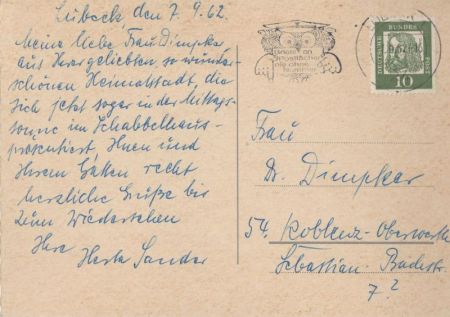 Lübeck, den 7.9.62.
Meine liebe Frau Dimpker
aus Ihrer geliebten, so wunder-
schönen Heimatstadt, die
sich jetzt sogar in der Mittags-
sonne im Schabbelhaus
präsentiert, Ihnen und
Ihrem Gatten recht
herzliche Grüße bis
zum Wiedersehen
Ihre
Herta Sander
DEUTSCHE BUNDES POST
10
Frau
Dr. Dimpker
54. Koblenz-Oberwerth
Sebastian-Bachstr.
7?